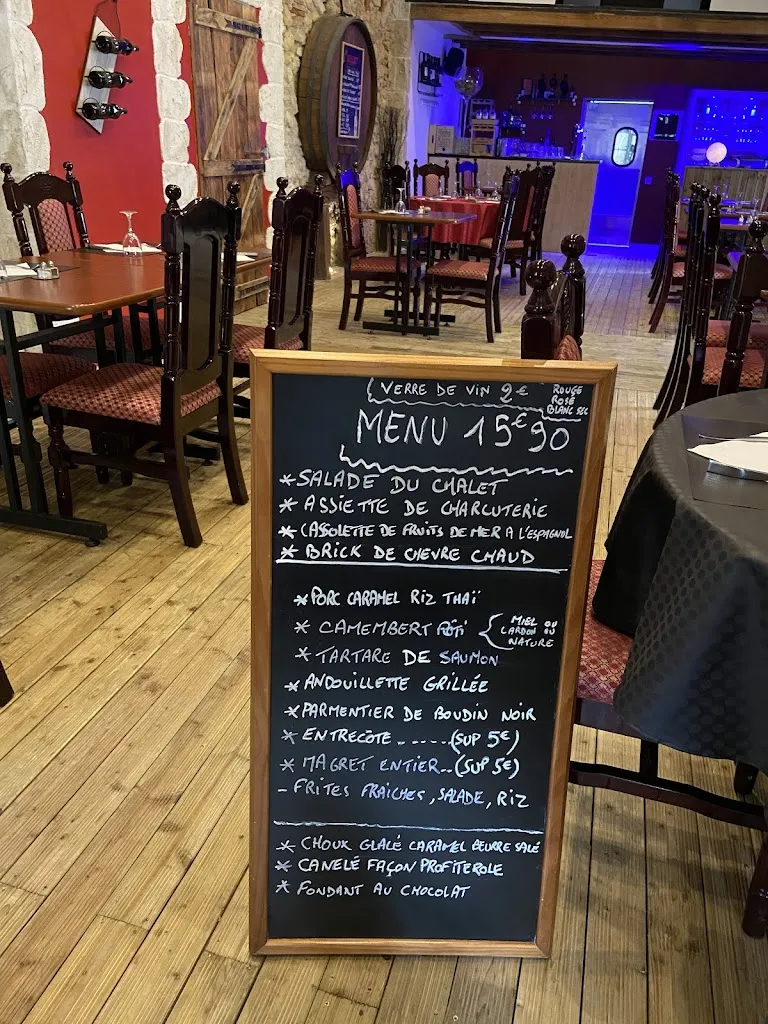 VERRE DE VIN 2€ ROUGE
ROSÉ
BLANC SEC
MENU 15€90
*SALADE DU CHALET
* ASSIETTE DE CHARCUTERIE
*CASSOLETTE DE FRUITS DE MER A L'ESPAGNOL
* BRICK DE CHEVRE CHAUD
*PORC CARAMEL RIZ THAÏ
* CAMEMBERT RÔTI { MIEL OU
LARDON OU
NATURE
*TARTARE DE SAUMON
*ANDOUILLETTE GRILLÉE
*PARMENTIER DE BOUDIN NOIR
* ENTRECÔTE ......(SUP 5€)
* MAGRET ENTIER..(SUP 5€)
- FRITES FRAICHES, SALADE, RIZ
* CHOUX GLACÉ CARAMEL BEURRE SALÉ
* CANELÉ FAÇON PROFITEROLE
* FONDANT AU CHOCOLAT